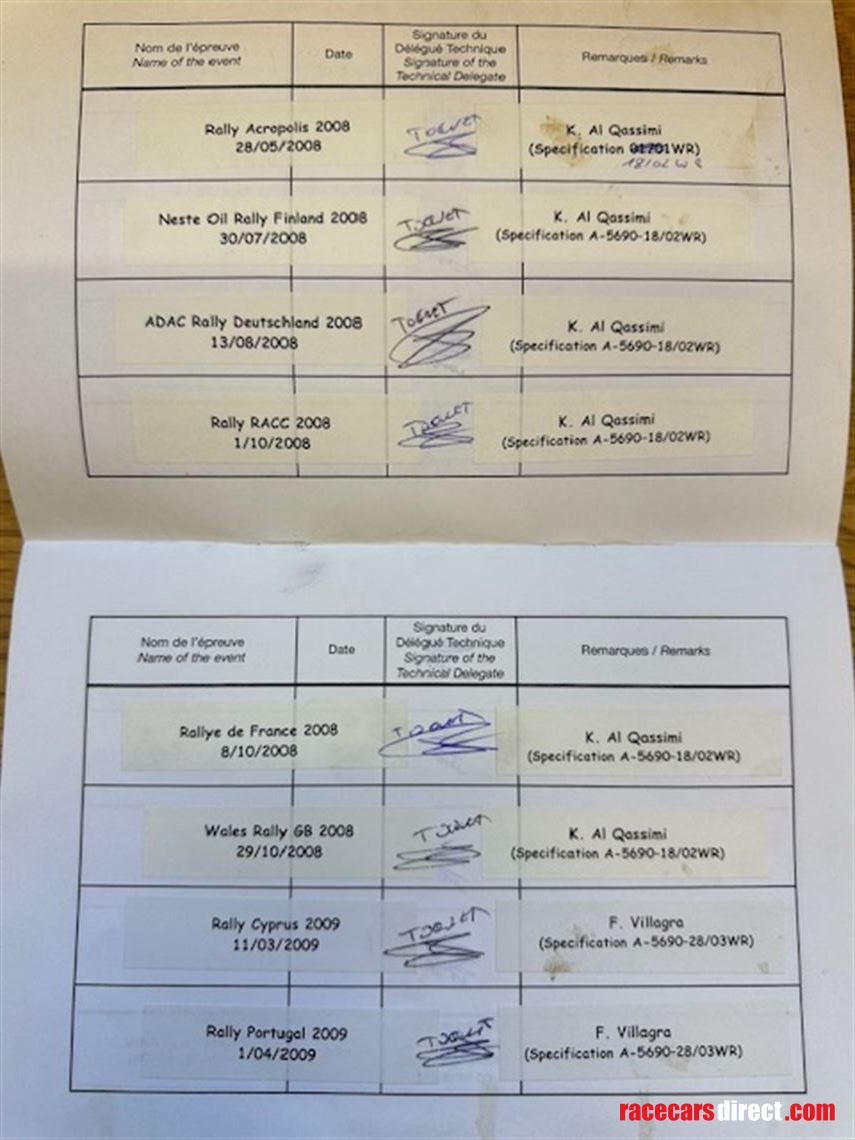 Nom de l'épreuve
Name of the event
Date
Signature du
Délégué Technique
Signature of the
Technical Delegate
Remarques / Remarks
Rally Acropolis 2008
28/05/2008
K. Al Qassimi
(Specification 01701WR)
18/02 W R
Neste Oil Rally Finland 2008
30/07/2008
K. Al Qassimi
(Specification A-5690-18/02WR)
ADAC Rally Deutschland 2008
13/08/2008
K. Al Qassimi
(Specification A-5690-18/02WR)
Rally RACC 2008
1/10/2008
K. Al Qassimi
(Specification A-5690-18/02WR)
Nom de l'épreuve
Name of the event
Date
Signature du
Délégué Technique
Signature of the
Technical Delegate
Remarques / Remarks
Rallye de France 2008
8/10/2008
K. Al Qassimi
(Specification A-5690-18/02WR)
Wales Rally GB 2008
29/10/2008
K. Al Qassimi
(Specification A-5690-18/02WR)
Rally Cyprus 2009
11/03/2009
F. Villagra
(Specification A-5690-28/03WR)
Rally Portugal 2009
1/04/2009
F. Villagra
(Specification A-5690-28/03WR)
racecarsdirect.com